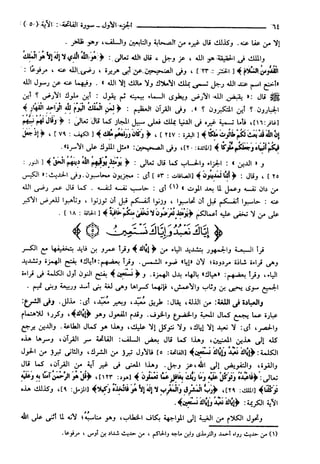 ٦٤ الجزء الأول - سورة الفاتحة: الآية (٥)
إلا من عفا عنه. وكذلك قال غيره من الصحابة والتابعين والسلف، وهو ظاهر.
والملك في الحقيقة هو الله، عز وجل، قال الله تعالى: ﴿هُوَ اللَّهُ الَّذِي لَا إِلَهَ إِلَّا هُوَ الْمَلِكُ
الْقُدُّوسُ السَّلَامُ﴾ [الحشر: ٢٣]، وفي الصحيحين عن أبي هريرة، رضي الله عنه، مرفوعًا:
«أخنع اسم عند الله رجل تسمى بملك الأملاك ولا مالك إلا الله». وفيهما عنه عن رسول الله
ﷺ قال: «يقبض الله الأرض ويطوي السماء بيمينه ثم يقول: أين ملوك الأرض؟ أين
الجبارون؟ أين المتكبرون؟». وفي القرآن العظيم: ﴿لِمَنِ الْمُلْكُ الْيَوْمَ لِلَّهِ الْوَاحِدِ الْقَهَّارِ﴾
[غافر: ١٦]، فأما تسمية غيره في الدنيا بملك فعلى سبيل المجاز كما قال تعالى: ﴿وَقَالَ لَهُمْ نَبِيُّهُمْ
إِنَّ اللَّهَ قَدْ بَعَثَ لَكُمْ طَالُوتَ مَلِكًا﴾ [البقرة: ٢٤٧]، ﴿وَكَانَ وَرَاءَهُمْ مَلِكٌ﴾ [الكهف: ٧٩]، ﴿إِذْ جَعَلَ
فِيكُمْ أَنْبِيَاءَ وَجَعَلَكُمْ مُلُوكًا﴾ [المائدة: ٢٠]، وفي الصحيحين: «مثل الملوك على الأسرة».
و«الدين»: الجزاء والحساب كما قال تعالى: ﴿يَوْمَئِذٍ يُوَفِّيهِمُ اللَّهُ دِينَهُمُ الْحَقَّ﴾ [النور:
٢٥]، وقال: ﴿أَإِنَّا لَمَدِينُونَ﴾ [الصافات: ٥٣] أي: مجزيون محاسبون. وفي الحديث: «الكيس
من دان نفسه وعمل لما بعد الموت»(١) أي: حاسب نفسه لنفسه. كما قال عمر رضي الله
عنه: حاسبوا أنفسكم قبل أن تحاسبوا، وزنوا أنفسكم قبل أن توزنوا، وتأهبوا للعرض الأكبر
على من لا تخفى عليه أعمالكم ﴿يَوْمَئِذٍ تُعْرَضُونَ لَا تَخْفَى مِنْكُمْ خَافِيَةٌ﴾ [الحاقة: ١٨].
﴿إِيَّاكَ نَعْبُدُ وَإِيَّاكَ نَسْتَعِينُ﴾
قرأ السبعة والجمهور بتشديد الياء من ﴿إِيَّاكَ﴾ وقرأ عمرو بن فايد بتخفيفها مع الكسر
وهي قراءة شاذة مردودة؛ لأن «إيا» ضوء الشمس. وقرأ بعضهم: «أياك» بفتح الهمزة وتشديد
الياء، وقرأ بعضهم: «هياك» بالهاء بدل الهمزة. و﴿نَسْتَعِينُ﴾ بفتح النون أول الكلمة في قراءة
الجميع سوى يحيى بن وثاب والأعمش، فإنهما كسراها وهي لغة بني أسد وربيعة وبني تميم.
والعبادة في اللغة: من الذلة، يقال: طريق مُعَبَّد، وبعير مُعَبَّد، أي: مذلل. وفي الشرع:
عبارة عما يجمع كمال المحبة والخضوع والخوف. وقدم المفعول وهو ﴿إِيَّاكَ﴾، وكرر؛ للاهتمام
والحصر، أي: لا نعبد إلا إياك، ولا نتوكل إلا عليك، وهذا هو كمال الطاعة. والدين يرجع
كله إلى هذين المعنيين، وهذا كما قال بعض السلف: الفاتحة سر القرآن، وسرها هذه
الكلمة: ﴿إِيَّاكَ نَعْبُدُ وَإِيَّاكَ نَسْتَعِينُ﴾ [الفاتحة: ٥] فالأول تبرؤ من الشرك، والثاني تبرؤ من الحول
والقوة، والتفويض إلى الله، عز وجل. وهذا المعنى في غير آية من القرآن، كما قال
تعالى: ﴿فَاعْبُدْهُ وَتَوَكَّلْ عَلَيْهِ وَمَا رَبُّكَ بِغَافِلٍ عَمَّا تَعْمَلُونَ﴾ [هود: ١٢٣]، ﴿قُلْ هُوَ الرَّحْمَنُ آمَنَّا بِهِ وَعَلَيْهِ
تَوَكَّلْنَا﴾ [الملك: ٢٩]، ﴿رَبُّ الْمَشْرِقِ وَالْمَغْرِبِ لَا إِلَهَ إِلَّا هُوَ فَاتَّخِذْهُ وَكِيلًا﴾ [المزمل: ٩]، وكذلك هذه
الآية الكريمة: ﴿إِيَّاكَ نَعْبُدُ وَإِيَّاكَ نَسْتَعِينُ﴾.
وتحول الكلام من الغيبة إلى المواجهة بكاف الخطاب، وهو مناسبة؛ لأنه لما أثنى على الله
(١) من حديث رواه أحمد والترمذي وابن ماجه والحاكم، من حديث شداد بن أوس، مرفوعا.